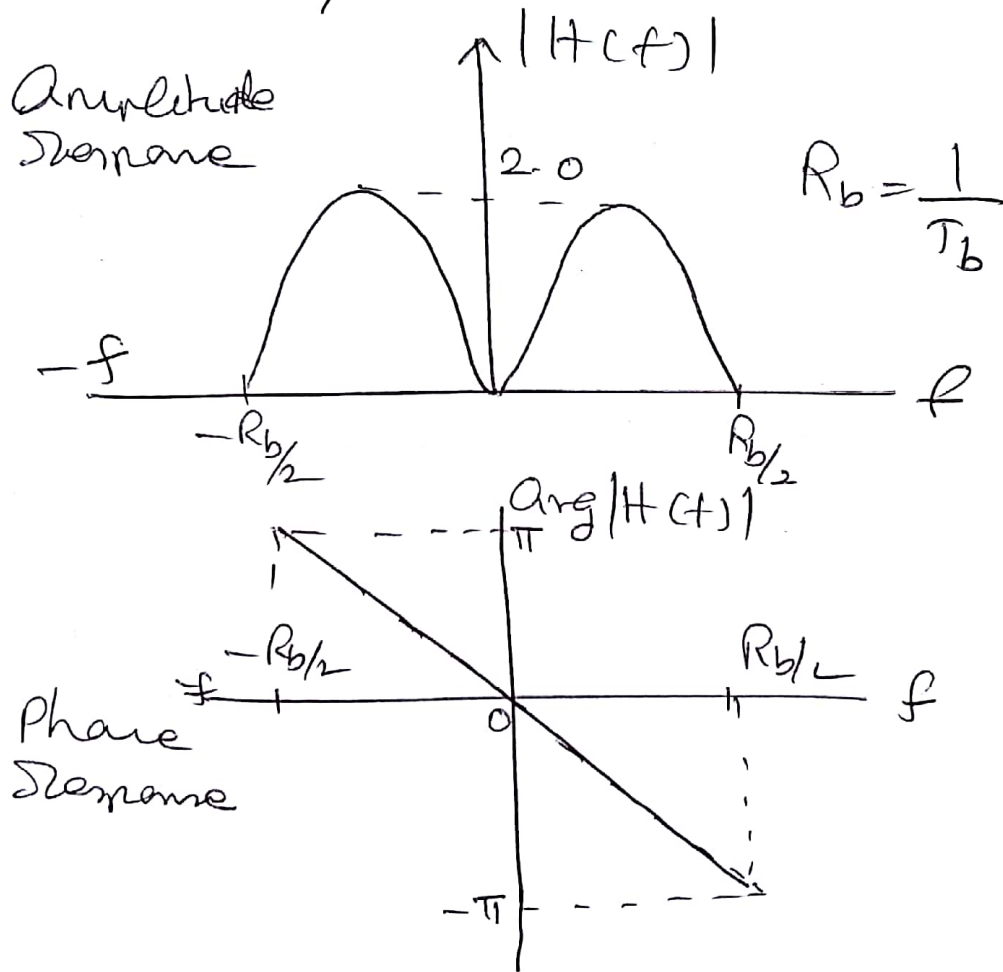 |H(f)|
Amplitude
Response
2.0
R_b = 1/T_b
-f
f
-R_b/2
R_b/2
Arg|H(f)|
π
-R_b/2
R_b/2
-f
f
0
Phase
Response
-π